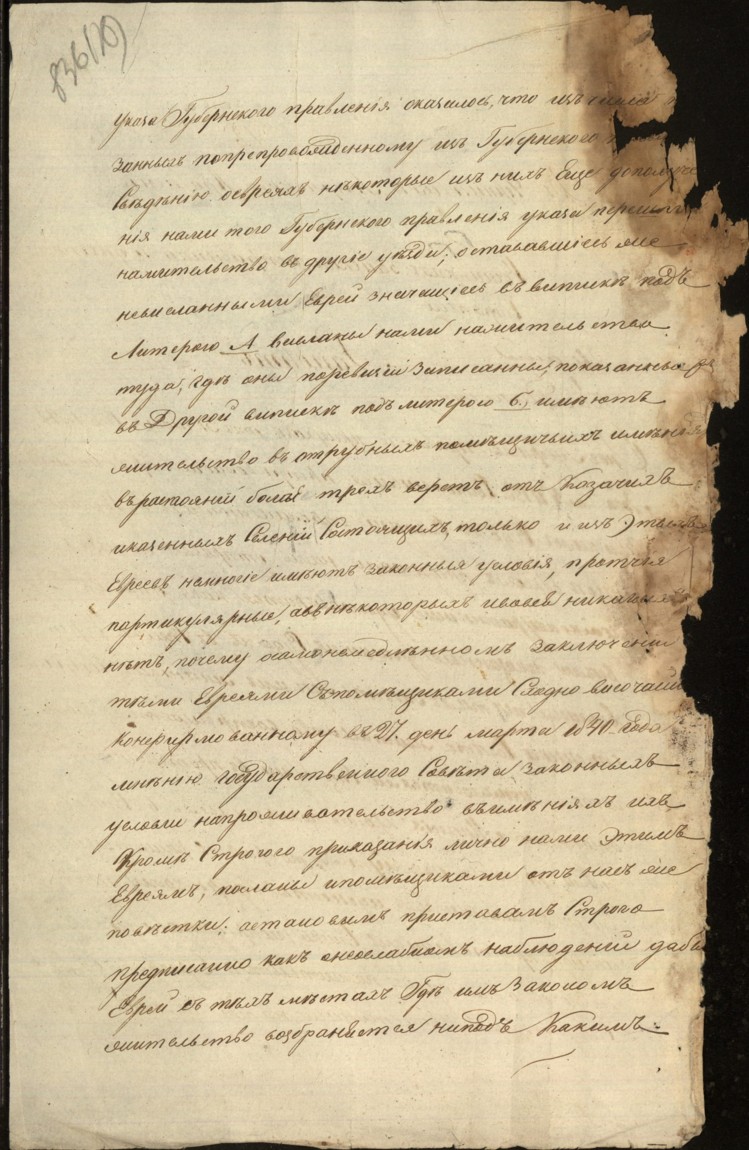 836(10)
указа Губернского правленія оказалось, что изъ числа
занныхъ попрепровожденному изъ Губернского
Сведѣнію освреяхъ нѣкоторые изъ нихъ Еще дополуче
нія нами того Губернского правленія указа перешли
нажительство въ другіе уѣзди; остававшіесь же
невисланными Еврей значащіесь въ випискѣ подъ
Литерою А висланы нами нажительство
туда, гдѣ они поревизіи записанны, показанные
въ Другой випискѣ подъ литерою Б., имѣютъ
жительство въ отрубныхъ помѣщичьихъ имѣніях
въ растояній болѣе трехъ верстъ отъ Козачихъ
и казенныхъ Селеній Состоящихъ, только и изъ Этихъ
Евреевъ немногіе имѣютъ законныя условія, протчія
партикулярные, а въ нѣкоторыхъ и вовсе никакихъ
нѣтъ, почему о самонемедлѣнномъ заключеніи
тѣми Евреями Съпомѣщиками Сходно височайше
конфирмованному въ 27. день марта 1840. года
мнѣнію государственного Совѣта, законныхъ
условій напрожиивательство въ имѣніяхъ ихъ,
Кромѣ Строгого приказанія лично нами Этимъ
Евреямъ, посланы ипомѣщиками отъ насъ же
повѣстки; астановымъ приставамъ Строго
предписанно какъ онеослабномъ наблюденій дабы
Еврей въ тѣхъ мѣстахъ Гдѣ имъ Закономъ
жительство возбраняется ниподъ Какимъ